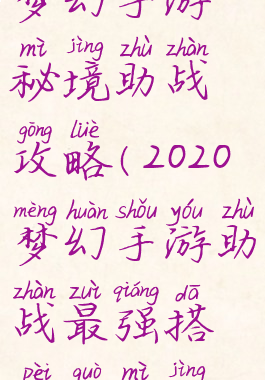 梦幻手游
mì jìng zhù zhàn
秘境助战
gōng lüè
攻略(2020
mèng huàn shǒu yóu zhù
梦幻手游助
zhàn zuì qiáng dā
战最强搭
pèi guò mì jìng